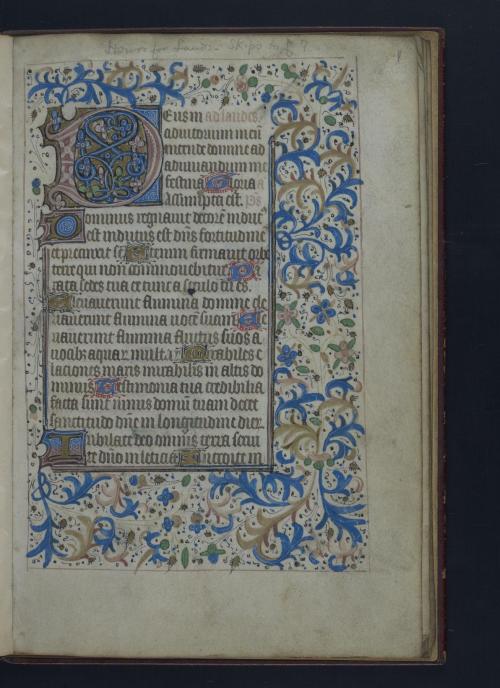 Hours for Lauds. Skips to f. ?
Deus in ad laudes
adiutorium meū
intende domine ad
adiuuandum me
festina Gloria
Assumpta est. ps
Dominus regnauit decorē indut̄
est indutus est dn̄s fortitudinē
et precinxit se Etenim firmauit orbē
terre qui non cōmouebitur Pa
rata sedes tua ex tunc a seculo tu es
Eleuauerunt flumina domine ele
uauerunt flumina uocē suam Ele
uauerunt flumina fluctus suos a
uocib; aquaꝝ multaꝝ Mirabiles e
laciones maris mirabilis in altis do
minus Testimonia tua credibilia
facta sunt nimis domū tuam decet
sanctitudo dn̄e in longitudine dierꝝ
Iubilate deo omnis terra serui
te dn̄o in leticia Introite in